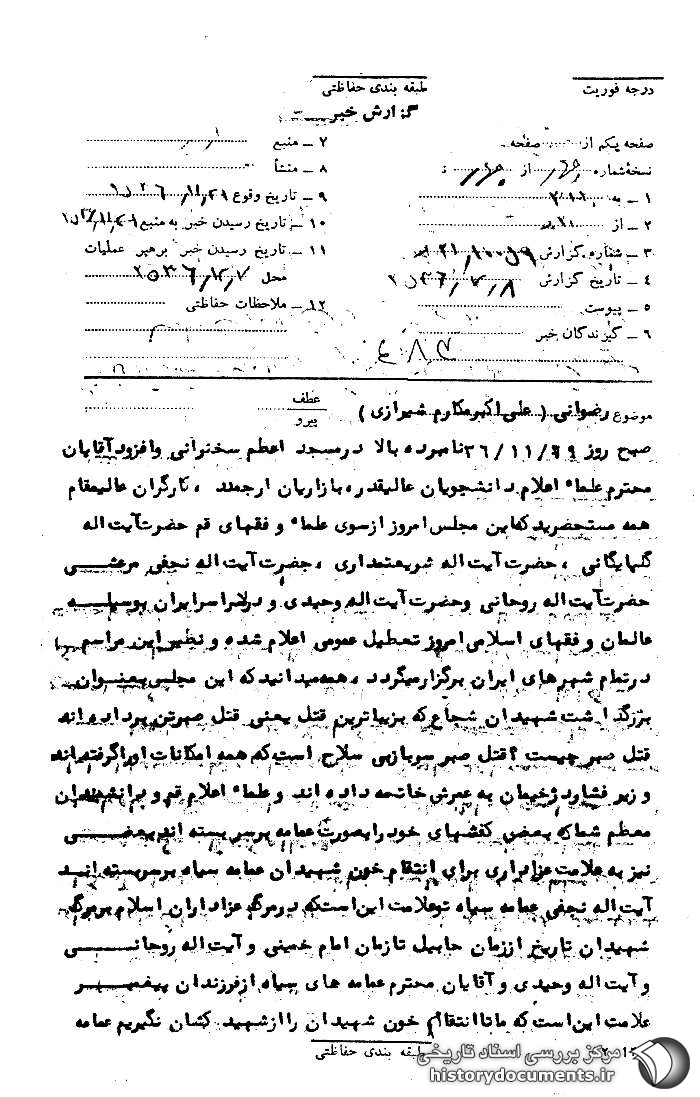 درجه فوریت
طبقه بندی حفاظتی
گزارش خبر
صفحه یکم از صفحه
نسخه شماره از
۱ ـ به
۲ ـ از
۳ ـ شماره گزارش
۴ ـ تاریخ گزارش
۵ ـ پیوست
۶ ـ گیرندگان خبر
۷ ـ منبع
۸ ـ منشأ
۹ ـ تاریخ وقوع
۱۰ ـ تاریخ رسیدن خبر به منبع
۱۱ ـ تاریخ رسیدن خبر برهبر عملیات
محل
۱۲ ـ ملاحظات حفاظتی
عطف
پیرو
موضوع رضوانی ( علی اکبر مکارم شیرازی )
صبح روز ۳۶/۱۱/۲۹ نامبرده بالا در مسجد اعظم سخنرانی وافزود آقایان
محترم علماء اعلام دانشجویان عالیقدر، بازاریان ارجمند ، کارگران عالیمقام
همه مستحضرید که این مجلس امروز از سوی علماء و فقهای قم حضرت آیت اله
گلپایگانی ، حضرت آیت اله شریعتمداری ، حضرت آیت اله نجفی مرعشی
حضرت آیت اله روحانی وحضرت آیت اله وحیدی و در سراسر ایران بوسیله
عالمان و فقهای اسلامی امروز تعطیل عمومی اعلام شده و نظیر این مراسم
در تمام شهرهای ایران برگزار میگردد ، همه میدانید که این مجلس بعنوان
بزرگداشت شهیدان شجاع که بزیباترین قتل یعنی قتل صبر تن برداده اند
قتل صبر چیست ؟ قتل صبر سرباز بی سلاح است که همه امکانات اورا گرفته اند
و زیر فشار دژخیمان به عمرش خاتمه داده اند و علماء اعلام قم و دانشمندان
معظم شما که بعضی کفشهای خود را بصورت عمامه برسر بسته اند بعضی
نیز به علامت عزاداری برای انتقام خون شهیدان عمامه سیاه برسر بسته اند
آیت اله نجفی عمامه سیاه تو علامت این است که در مرگ عزاداران اسلام بر مرگ
شهیدان تاریخ از زمان هابیل تا زمان امام خمینی و آیت اله روحانی
و آیت اله وحیدی و آقایان محترم عمامه های سیاه از فرزندان پیغمبر
علامت این است که ما تا انتقام خون شهیدان را از شهید کشان نگیریم عمامه
طبقه بندی حفاظتی
مرکز بررسی اسناد تاریخی
historydocuments.ir